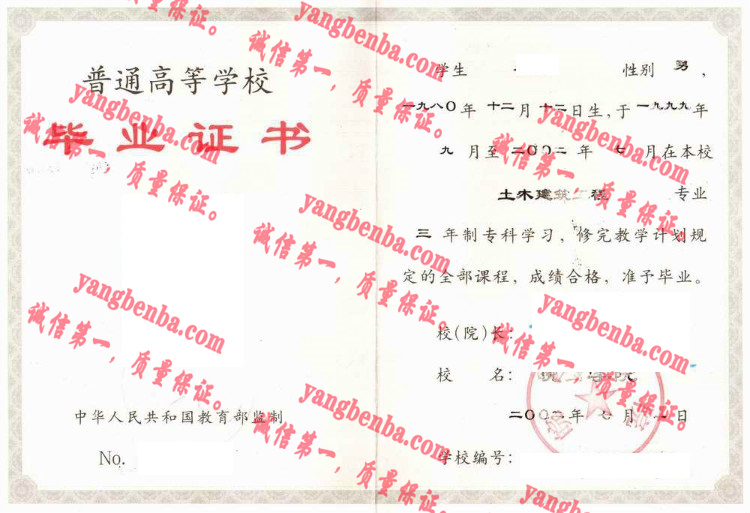 普通高等学校
毕业证书
中华人民共和国教育部监制
No.
学生 性别 男，
一九八〇年 十二月 十二日生，于一九九九年
九 月至 二〇〇二 年 七 月在本校
土木建筑工程 专业
三 年制专科学习，修完教学计划规
定的全部课程，成绩合格，准予毕业。
校（院）长：
校 名：
二〇〇二年 七 月 日
学校编号：
yangbenba.com
诚信第一，质量保证。
yangbenba.com
诚信第一，质量保证。
yangbenba.com
诚信第一，质量保证。
yangbenba.com
诚信第一，质量保证。
yangbenba.com
诚信第一，质量保证。
yangbenba.com
诚信第一，质量保证。
yangbenba.com
诚信第一，质量保证。
yangbenba.com